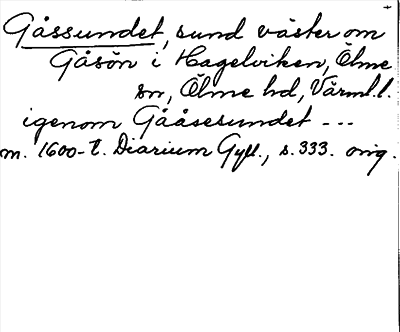 Gåssundet, sund väster om
Gåsön i Hagelviken, Ölme
sn, Ölme hd, Värml.l.
igenom Gååsesundet ---
m. 1600-t. Diarium Gyll., s.333. orig.